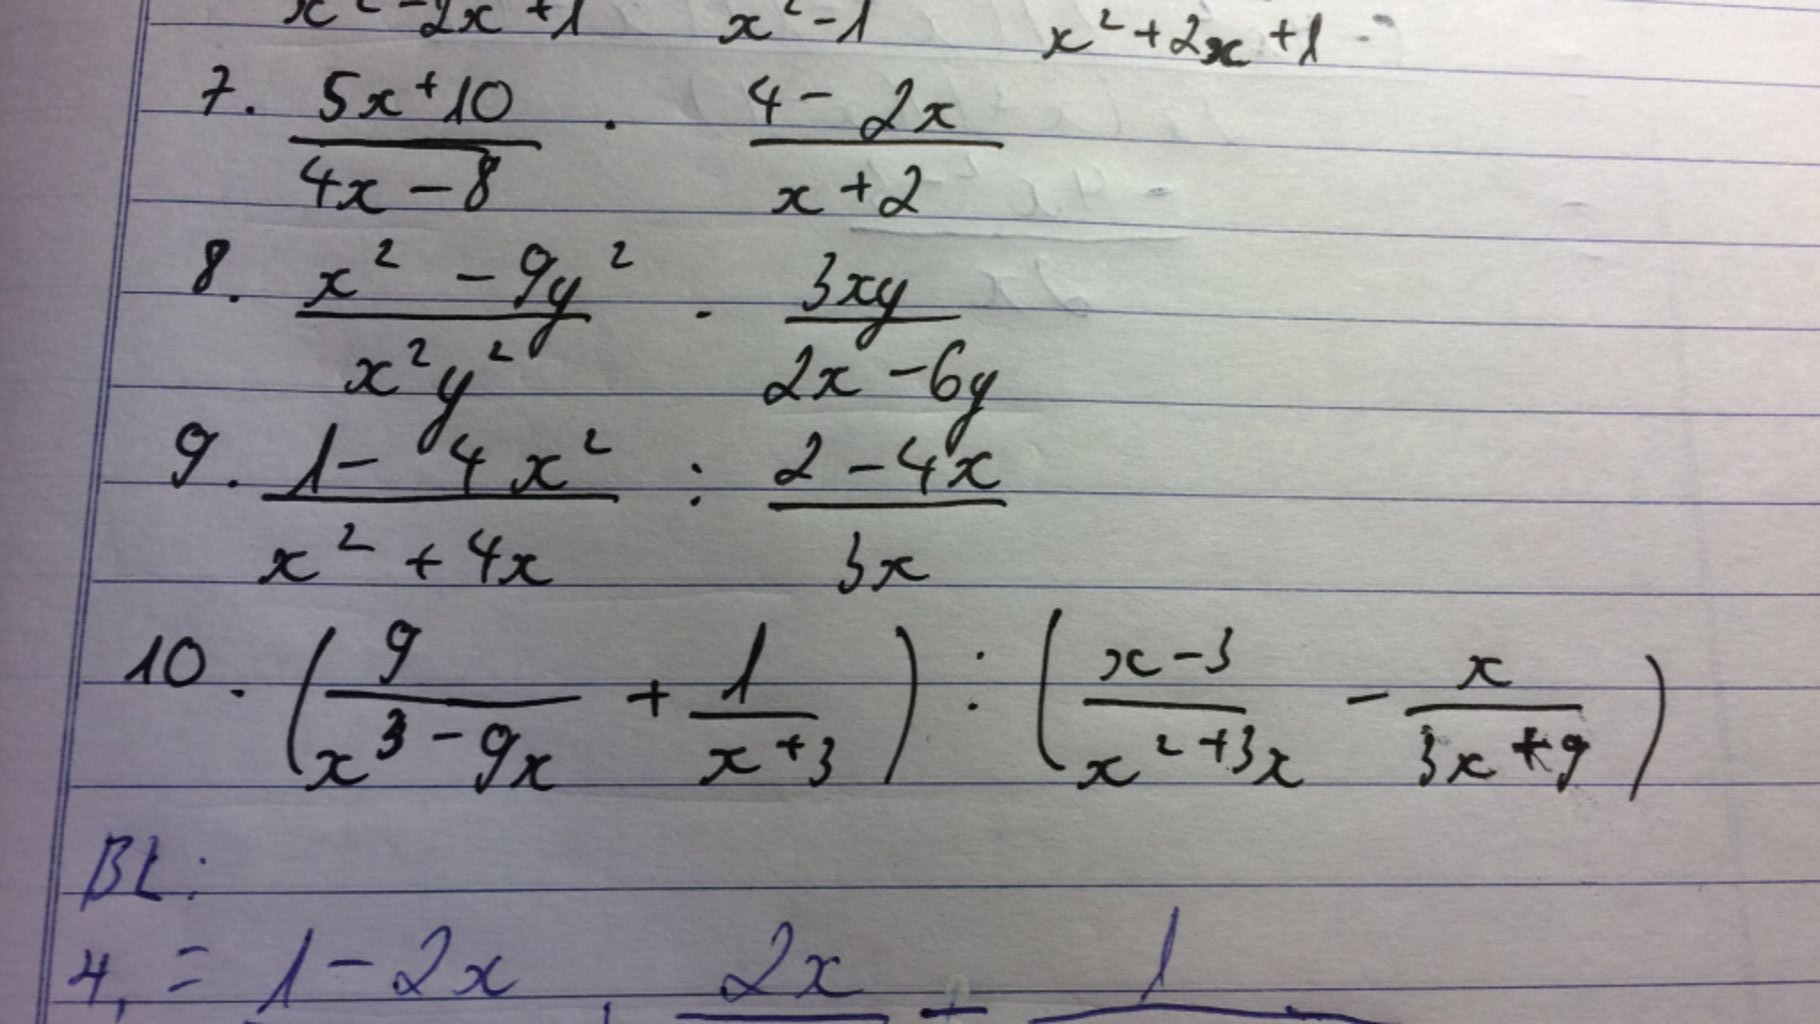 x² - 2x + 1 x² - 1 x² + 2x + 1
7. (5x + 10)/(4x - 8) · (4 - 2x)/(x + 2)
8. (x² - 9y²)/(x²y²) · (3xy)/(2x - 6y)
9. (1 - 4x²)/(x² + 4x) : (2 - 4x)/(3x)
10. (9/(x³ - 9x) + 1/(x + 3)) : ((x - 3)/(x² + 3x) - x/(3x + 9))
BL:
4, = 1 - 2x 2x + 1